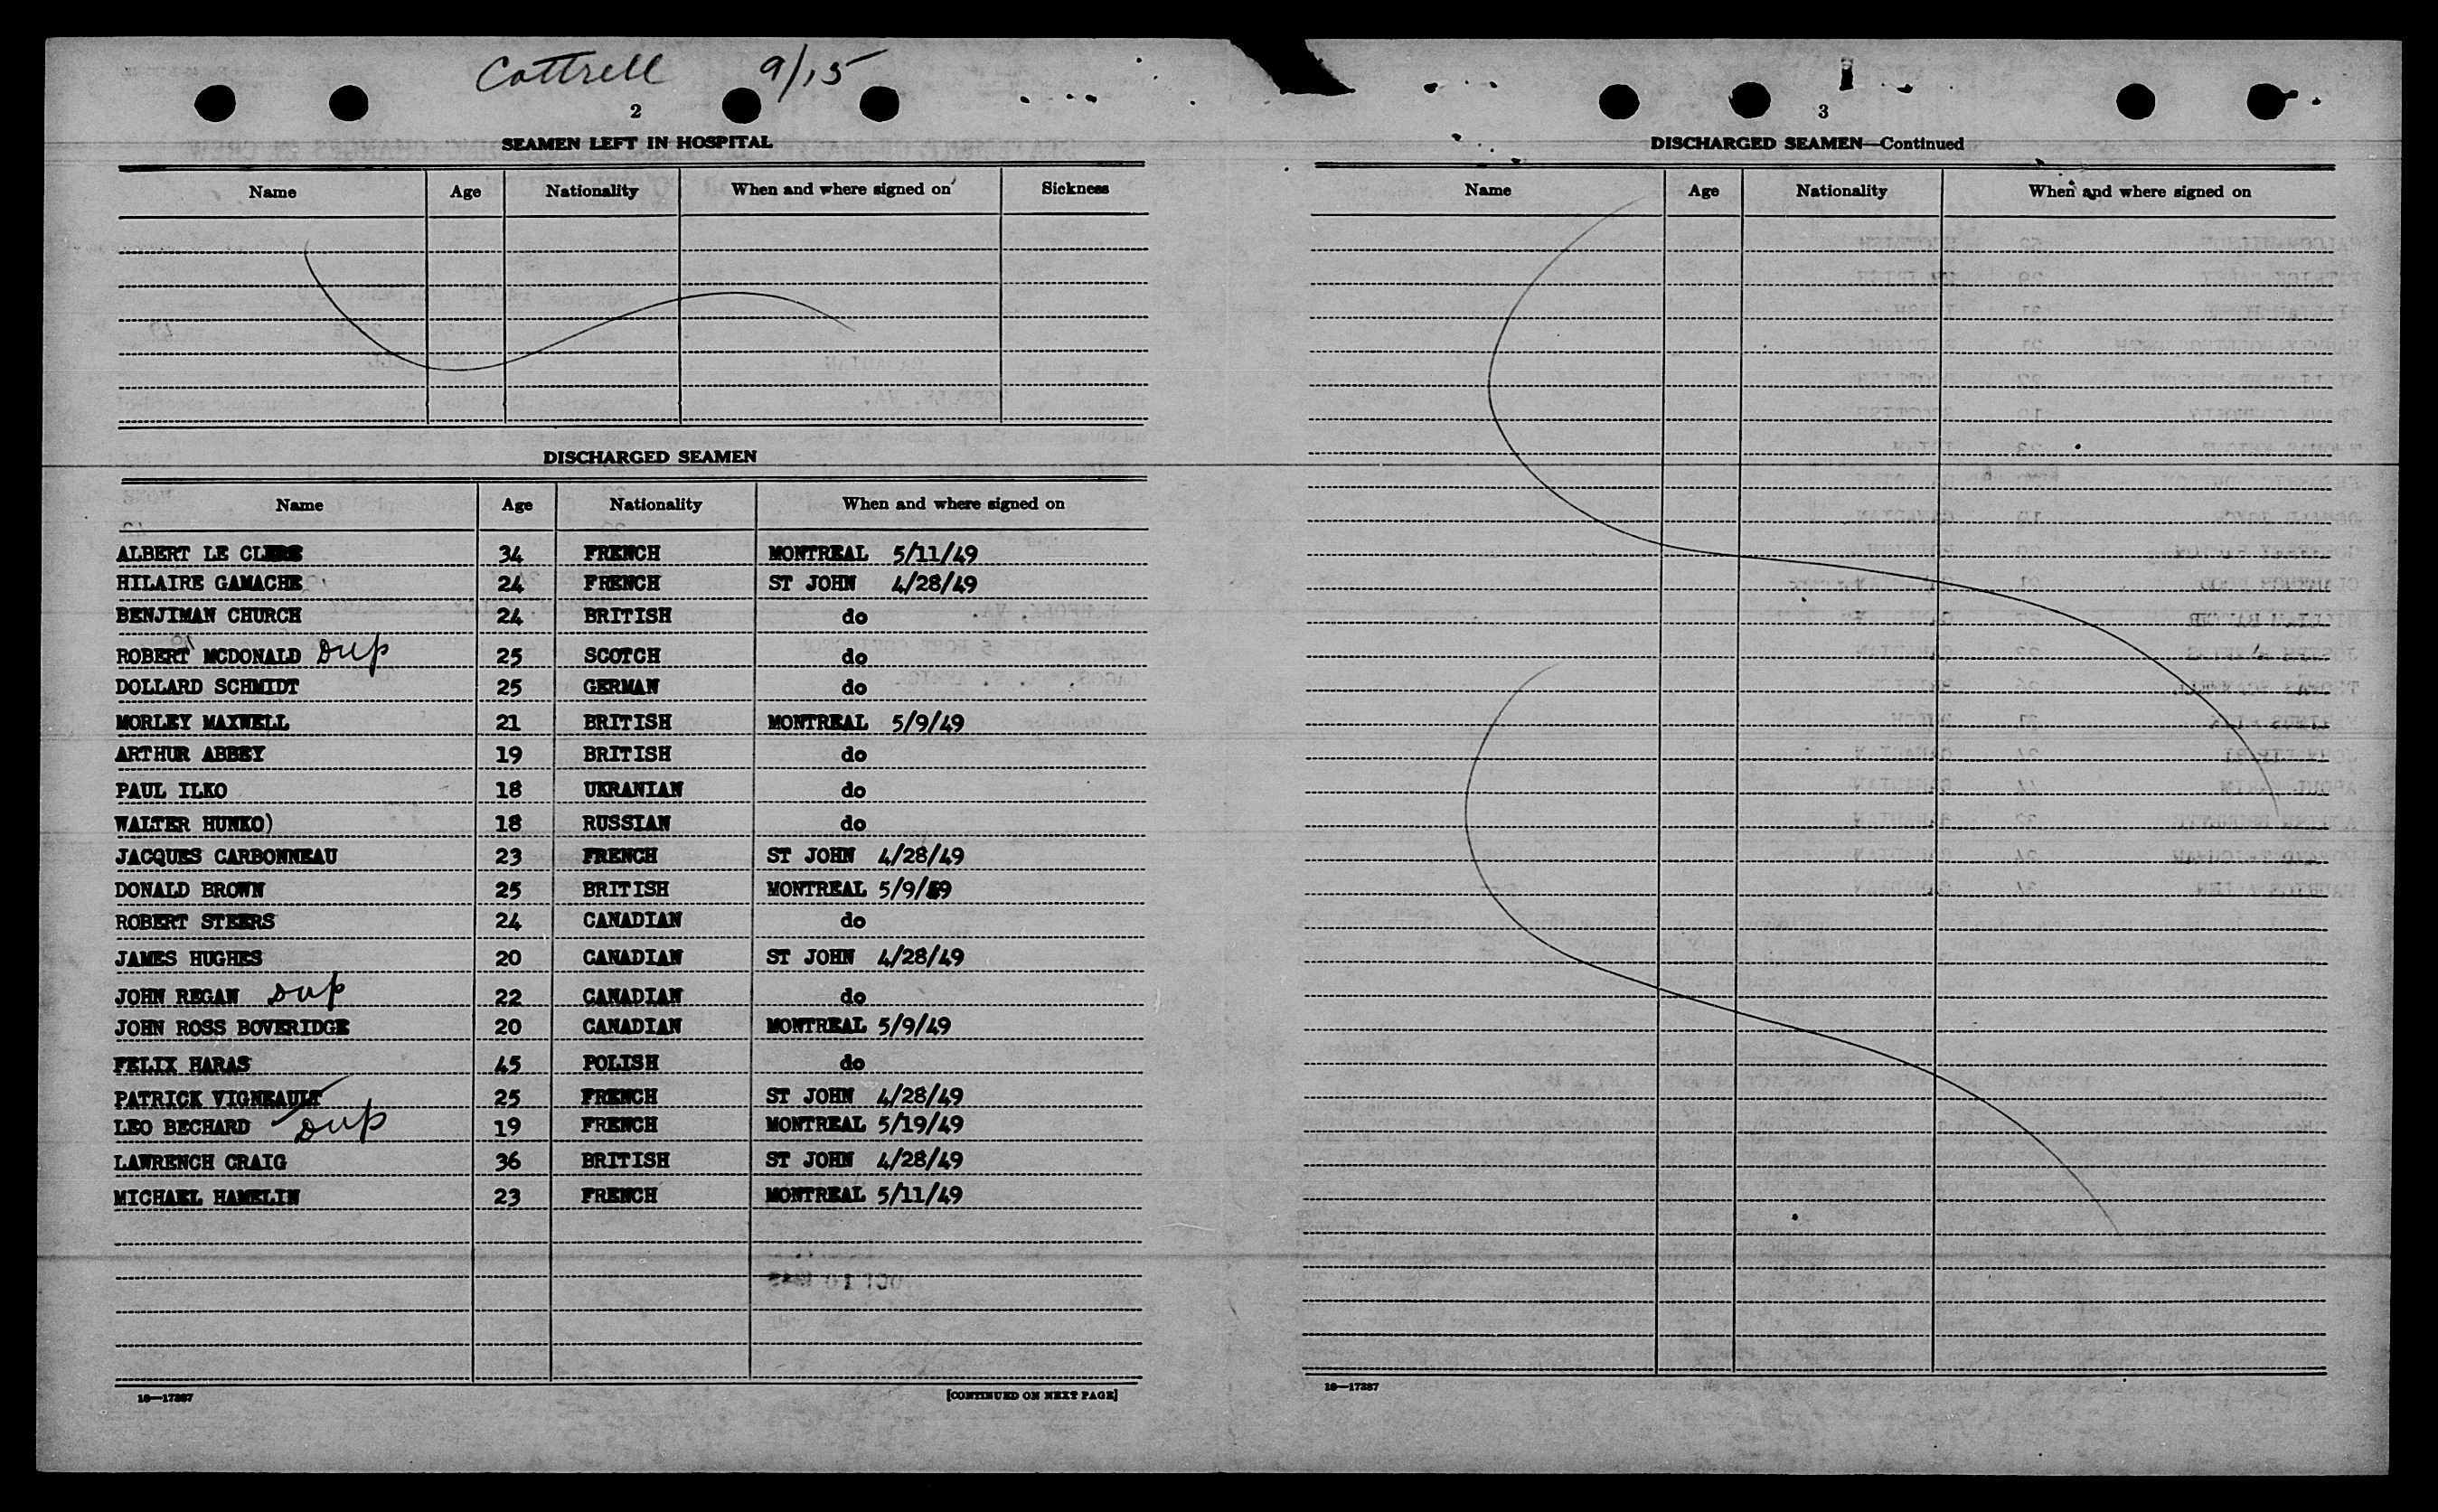 Cottrell 9/15
2
SEAMEN LEFT IN HOSPITAL
Name Age Nationality When and where signed on Sickness
DISCHARGED SEAMEN
Name Age Nationality When and where signed on
ALBERT LE CLERC 34 FRENCH MONTREAL 5/11/49
HILAIRE GAMACHE 24 FRENCH ST JOHN 4/28/49
BENJIMAN CHURCH 24 BRITISH do
ROBERT MCDONALD Dup 25 SCOTCH do
DOLLARD SCHMIDT 25 GERMAN do
MORLEY MAXWELL 21 BRITISH MONTREAL 5/9/49
ARTHUR ABBEY 19 BRITISH do
PAUL ILKO 18 UKRANIAN do
WALTER HUNKO) 18 RUSSIAN do
JACQUES CARBONNEAU 23 FRENCH ST JOHN 4/28/49
DONALD BROWN 25 BRITISH MONTREAL 5/9/49
ROBERT STEERS 24 CANADIAN do
JAMES HUGHES 20 CANADIAN ST JOHN 4/28/49
JOHN REGAN Dup 22 CANADIAN do
JOHN ROSS BOVERIDGE 20 CANADIAN MONTREAL 5/9/49
FELIX HARAS 45 POLISH do
PATRICK VIGNEAULT 25 FRENCH ST JOHN 4/28/49
LEO BECHARD Dup 19 FRENCH MONTREAL 5/19/49
LAWRENCH CRAIG 36 BRITISH ST JOHN 4/28/49
MICHAEL HAMELIN 23 FRENCH MONTREAL 5/11/49
16—17387
[CONTINUED ON NEXT PAGE]
3
DISCHARGED SEAMEN—Continued
Name Age Nationality When and where signed on
16—17387